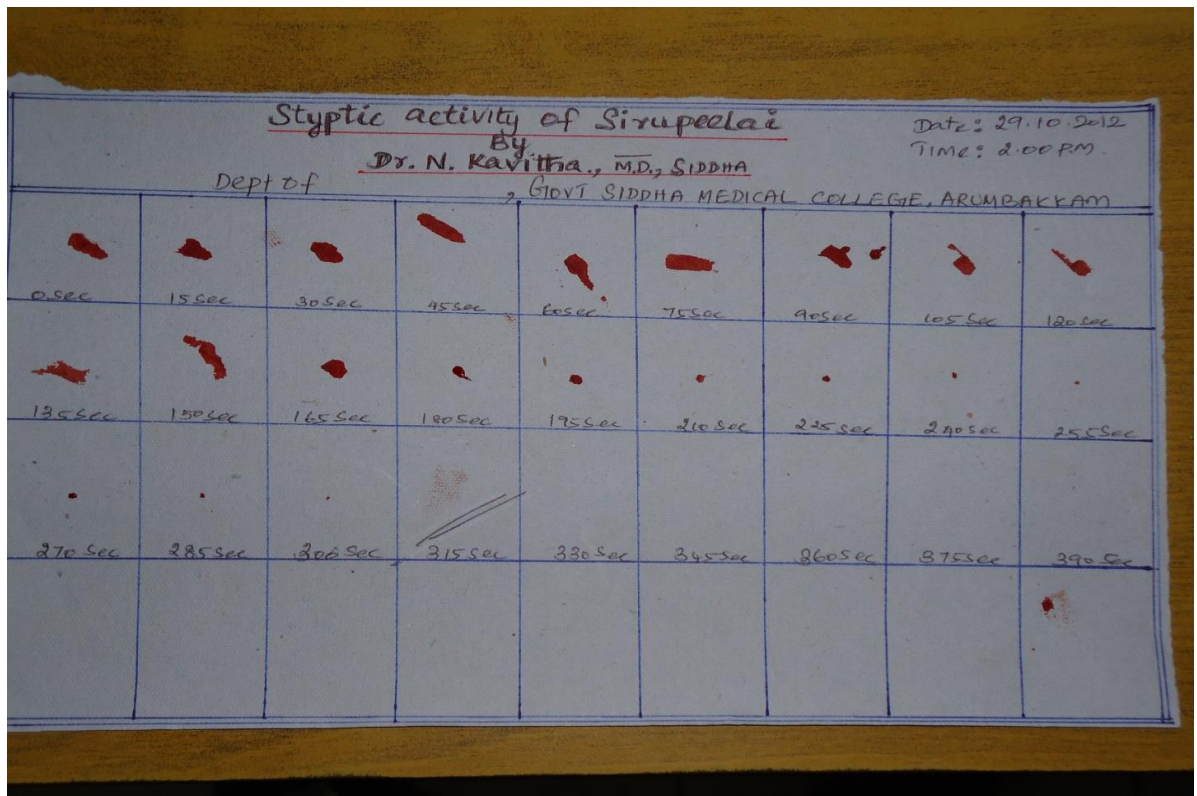 Styptic activity of Sirupeelai
Date: 29.10.2012
By
TIME: 2.00 P.M.
Dr. N. Kavitha., M.D., SIDDHA
Dept of , GOVT SIDDHA MEDICAL COLLEGE, ARUMBAKKAM
0 sec 15 sec 30 sec 45 sec 60 sec 75 sec 90 sec 105 sec 120 sec
135 sec 150 sec 165 sec 180 sec 195 sec 210 sec 225 sec 240 sec 255 sec
270 sec 285 sec 300 sec 315 sec 330 sec 345 sec 360 sec 375 sec 390 sec